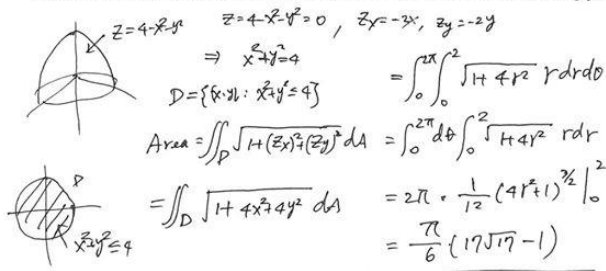 z=4-x²-y²
z=4-x²-y²=0, Zx=-3x, Zy=-2y
⇒ x²+y²=4
D={(x,y): x²+y²≤4}
Area=∬_D √(1+(Zx)²+(Zy)²) dA
=∬_D √(1+4x²+4y²) dA
=∫₀^{2π}∫₀² √(1+4r²) r dr dθ
=∫₀^{2π} dθ ∫₀² √(1+4r²) r dr
=2π · 1/12 (4r²+1)^{3/2} |₀²
=π/6 (17√17-1)
D
x²+y²≤4